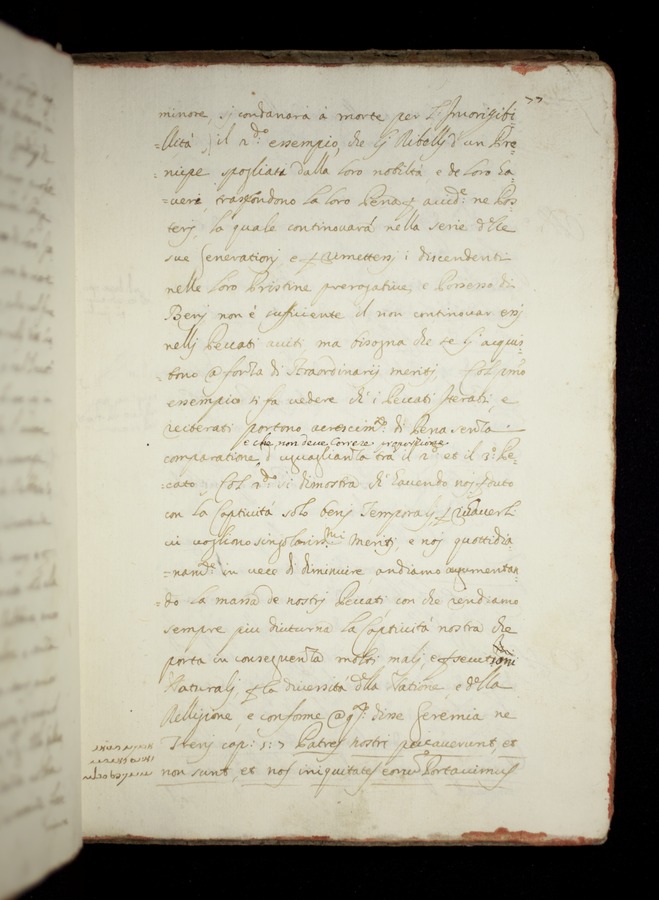 77
minore, si condanará á morte per l'Incorrigibi=
=llità, il 2.do essempio, che li Ribelli d'un Pre=
=nicpe spogliati dalla loro nobiltá e de loro ha=
=veri, traspondono la loro Pena ne Pos
terj, la quale continouará nella serie delle
sue Generationj e p rimettersj i discendenti
nelle loro Pristine prerogative, e Possesso di
Benj non é sufficiente il non continouar essj
nellj Peccati aviti ma bisogna che se li acquis=
tino a forza di straordinarij meritj, Col primo
essempio si fa vedere ch'i Peccati Iterati, e
reiterati portono accrescim.to di Pena senza
e che non deve Correre proposizione
comparatione, d'uguaglianza trá il 2.o et il 3.o Pe=
=cato, Col 2.do si dimostra ch'havendo noi
con la Captivitá solo benj Temporalj, p rihaverli
vi vogliono singolarissimi Meritj, e noj quottidia=
=nam.te in vece di diminuire andiamo augumentan
=do la massa de nostrj Peccati con che rendiamo
sempre piu diuturna la Captivitá nostra che
porta in conseguenza moltj malj e
Naturalj p la diversitá della Natione e della
Relligione, e conforme disse Geremia ne
Trenj cap: 5: 7 Patres nostri peccaverunt, et
non sunt, et nos iniquitates eorum Portavimus